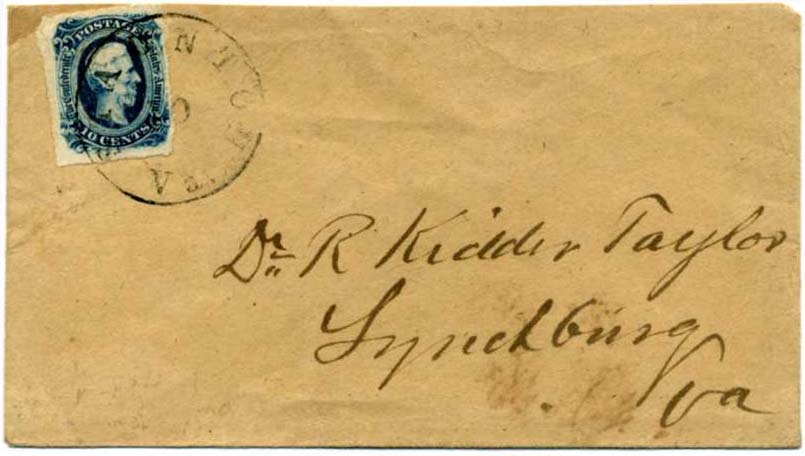 POSTAGE
The Confederate States of America
10 CENTS
VA
Dr. R Kidder Taylor
Lynchburg
Va